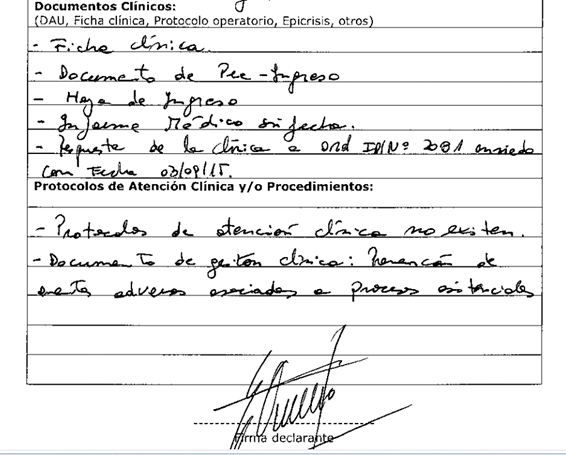 Documentos Clínicos:
(DAU, Ficha clínica, Protocolo operatorio, Epicrisis, otros)
- Ficha clínica
- Documento de Pre-Ingreso
- Hoja de Ingreso
- Informe Médico sin fecha.
- Respuesta de la clínica a Ord Nº 2081 enviado
con Fecha 03/09/15.
Protocolos de Atención Clínica y/o Procedimientos:
- Protocolos de atención clínica no existen.
- Documento de gestión clínica: Prevención de
eventos adversos asociados a procesos asistenciales
Firma declarante